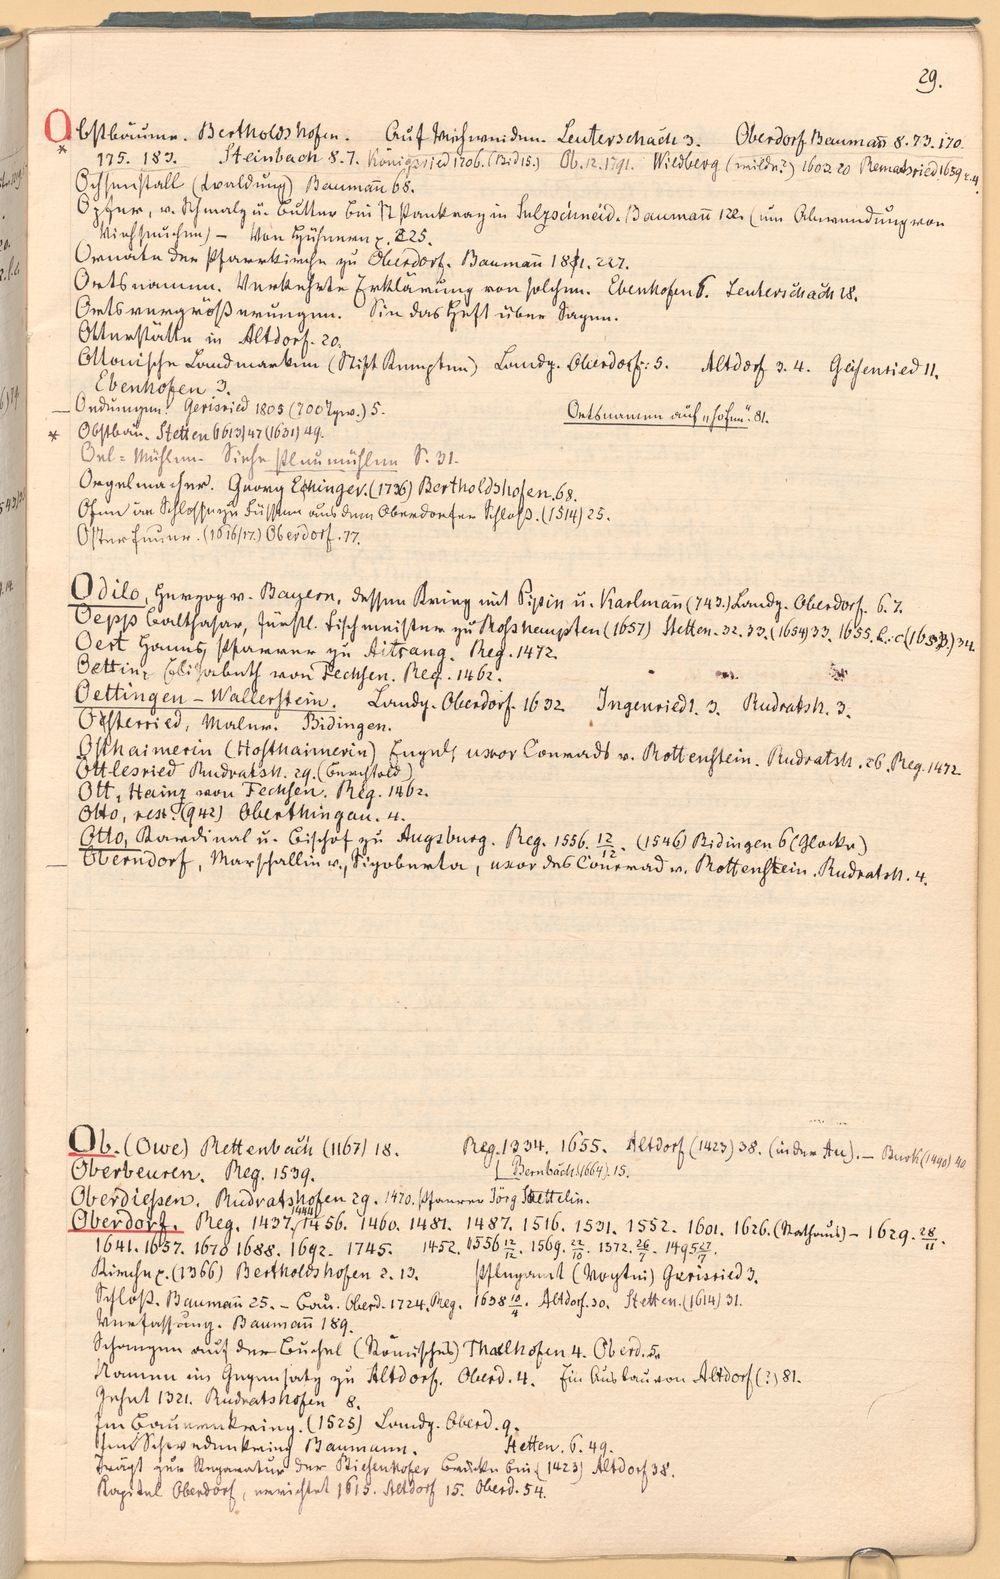 29.
Obstbäume. Bertholdshofen. Auf Viehweiden. Leuterschach 3. Oberdorf. Baumañ 8. 73. 170.
* 175. 183. Steinbach 8. 7. Königsried 1706. (Bid 15.) Ob. 12. 1791. Wiedberg (wilde?) 1602. 20 Rematsried 1659
Ochsenstall (Waldung) Baumañ 68.
Opfer, v. Schmalz u. Butter bei St Pankraz in Sulzschneid. Baumañ 122. (um Abwendung von
Viehseuchen) – Von Hühnern 225.
Ornate der Pfarrkirche zu Oberdorf. Baumañ 181. 227.
Ortsnamen. Verkehrte Erklärung von solchen. Ebenhofen 6. Leuterschach 28.
Ortsvergrößerungen. Sieh das Heft über Sagen.
Otterstätte in Altdorf. 20.
Ottonische Landmarken (Stift Kempten) Landg. Oberdorf: 5. Altdorf 3. 4. Geisenried 11.
Ebenhofen 3.
– Oedungen. Gerisried 1805 (700 Tgw.) 5. Ortsnamen auf „hofen". 81.
* Obstbau. Stetten (1613) 47 (1631) 49.
Oel=Mühlen. Siehe Pleumühlen S. 31.
Orgelmacher. Georg Eßinger. (1736) Bertholdshofen. 68.
Ofen im Schlosse zu Füssen aus dem Oberdorfer Schloß. (1514) 25.
Osterfeuer. (1616/17.) Oberdorf. 77.
Odilo, Herzog v. Bayern, dessen Krieg mit Pipin u. Karlmañ (743.) Landg. Oberdorf. 6. 7.
Oepp Balthasar, fürstl. Fischmeister zu Roßkempten (1657) Stetten. 32. 33. (1654) 33. 1655.
Oert Hanns, Pfarrer zu Aitrang. Reg. 1472.
Oettin, Elisabeth von Fechsen. Reg. 1462.
Oettingen – Wallerstein. Landg. Oberdorf. 1632 Ingenried 1. 3. Rudratsh. 3.
Osterried, Maler. Bidingen.
Osthaimerin (Hosthaimerin) Engel, uxor Conrads v. Rottenstein. Rudratsh. 26. Reg. 1472
Öttlesried Rudratsh. 29. (Berchtold)
Ott, Hainz von Fechsen. Reg. 1462.
Otto, rex. (942) Oberthingau. 4.
Otto, Kardinal u. Bischof zu Augsburg. Reg. 1556. 12/12. (1546) Bidingen 6 (Glocke)
– Oberndorf, Marschallin v., Sigoberta, uxor des Counrad v. Rottenstein. Rudratsh. 4.
Ob. (Owe) Rettenbach (1167) 18. Reg. 1334. 1655. Altdorf (1423) 38. (in der Au). – Burk (1490) 40
Oberbeuren. Reg. 1539. Bernbach (1664). 15.
Oberdiessen. Rudratshofen 29. 1470. Pfarrer Jörg Stettelin.
Oberdorf. Reg. 1437. 1444 1456. 1460. 1481. 1487. 1516. 1531. 1552. 1601. 1626. (Rathaus) – 1629. 28/11.
1641. 1657. 1670 1688. 1692. 1745. 1452. 1556 12/12. 1569. 22/10. 1572. 26/7. 1495 27/7.
Kirche (1366) Bertholdshofen 2. 13. Pflegamt (Vogtei) Gerisried 3.
Schloß. Baumañ 25. – Bau. Oberd. 1724. Reg. 1638 10/4. Altdorf. 30. Stetten. (1614) 31.
Verfassung. Baumañ 189.
Schanzen auf der Buchel (Römisches) Thalhofen 4. Oberd. 5.
Namen im Gegensatz zu Altdorf. Oberd. 4. Ein Ausbau von Altdorf (?) 81.
Zehnt 1321. Rudratshofen 8.
Im Bauernkrieg. (1525) Landg. Oberd. 9.
Im Schwedenkrieg Baumann. Stetten. 6. 49.
Trägt zur Reparatur der Biesenhofer Brücke bei (1423) Altdorf 38.
Kapitel Oberdorf, errichtet 1615. Altdorf 15. Oberd. 54.